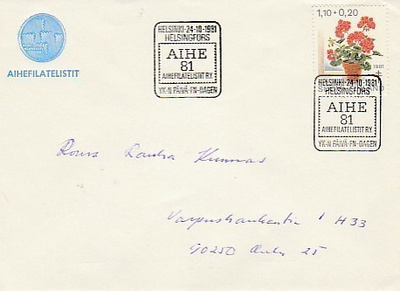 AIHEFILATELISTIT
HELSINKI-24-10-1981
HELSINGFORS
AIHE
81
AIHEFILATELISTIT RY.
YK-N PÄIVÄ-FN-DAGEN
1,10+0,20
1981
HELSINKI-24-10-1981
HELSINGFORS
AIHE
81
AIHEFILATELISTIT RY.
YK-N PÄIVÄ-FN-DAGEN
Rouva Rauha Kunnas
1 H 33
90250 Oulu 25